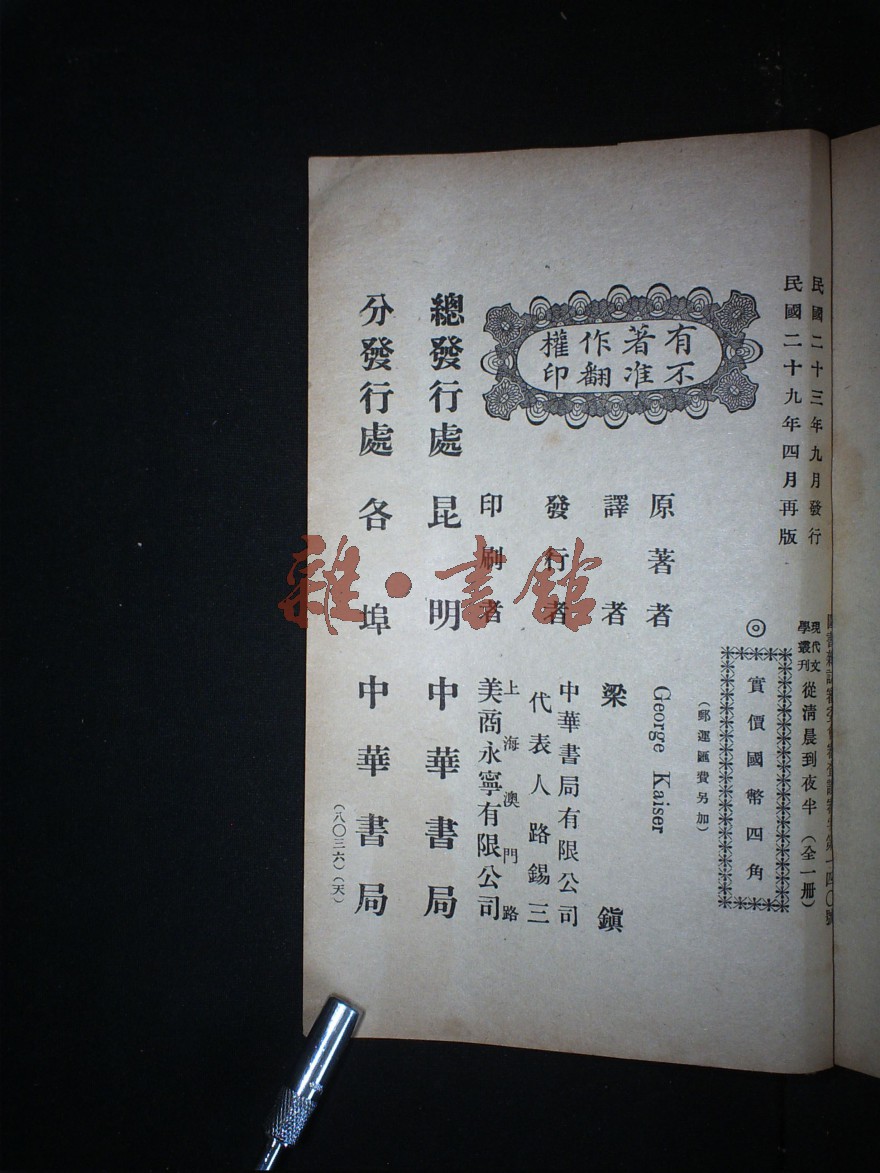 民國二十三年九月發行
民國二十九年四月再版
現代文學叢刊 從清晨到夜半（全一册）
◎實價國幣四角
（郵運匯費另加）
有著作權
不准翻印
原著者 George Kaiser
譯者 梁鎮
發行者 中華書局有限公司
代表人路錫三
印刷者 上海澳門路
美商永寧有限公司
總發行處 昆明中華書局
分發行處 各埠中華書局
（八〇三六）（天）
雜·書館